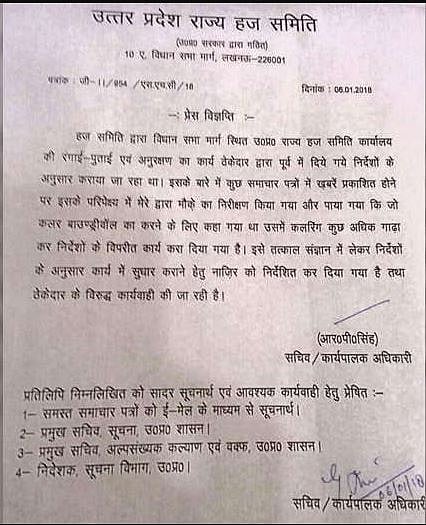 उत्तर प्रदेश राज्य हज समिति
(उ0प्र0 सरकार द्वारा गठित)
10 ए, विधान सभा मार्ग, लखनऊ-226001
पत्रांक : जी-11/954 /एस.एच.सी/18 दिनांक : 06.01.2018
-: प्रेस विज्ञप्ति :-
हज समिति द्वारा विधान सभा मार्ग स्थित उ0प्र0 राज्य हज समिति कार्यालय
की रंगाई-पुताई एवं अनुरक्षण का कार्य ठेकेदार द्वारा पूर्व में दिये गये निर्देशों के
अनुसार कराया जा रहा था। इसके बारे में कुछ समाचार पत्रों में खबरें प्रकाशित होने
पर इसके परिपेक्ष्य में मेरे द्वारा मौके का निरीक्षण किया गया और पाया गया कि जो
कलर बाउण्ड्रीवॉल का करने के लिए कहा गया था उसमें कलरिंग कुछ अधिक गाढ़ा
कर निर्देशों के विपरीत कार्य करा दिया गया है। इसे तत्काल संज्ञान में लेकर निर्देशों
के अनुसार कार्य में सुधार कराने हेतु नाज़िर को निर्देशित कर दिया गया है तथा
ठेकेदार के विरूद्ध कार्यवाही की जा रही है।
(आर0पी0सिंह)
सचिव/कार्यपालक अधिकारी
प्रतिलिपि निम्नलिखित को सादर सूचनार्थ एवं आवश्यक कार्यवाही हेतु प्रेषित :-
1- समस्त समाचार पत्रों को ई-मेल के माध्यम से सूचनार्थ।
2- प्रमुख सचिव, सूचना, उ0प्र0 शासन।
3- प्रमुख सचिव, अल्पसंख्यक कल्याण एवं वक्फ, उ0प्र0 शासन।
4- निदेशक, सूचना विभाग, उ0प्र0।
06/01/18
सचिव/कार्यपालक अधिकारी